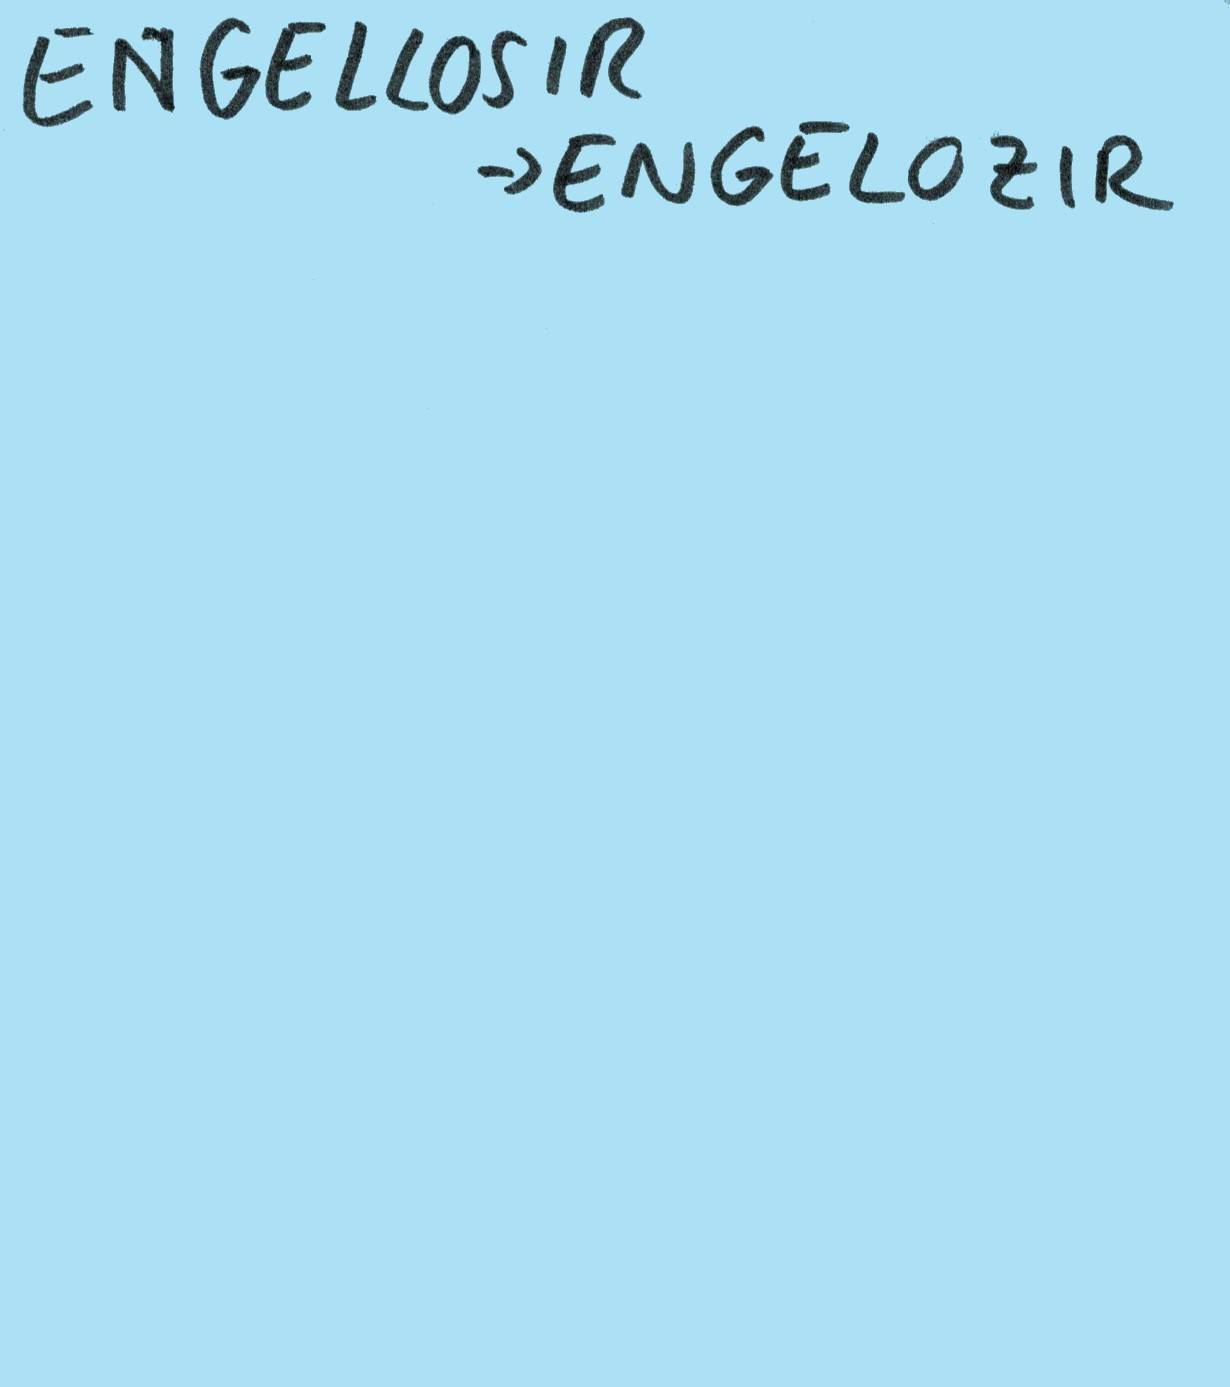 ENGELLOSIR
→ENGELOZIR